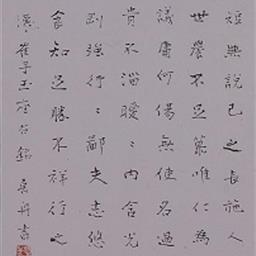 短無說己之長施人
世譽不足慕唯仁為
議庸何傷無使名過
貴不淄曖〻內含光
剛強行〻鄙夫志悠
食知足勝不祥行之
崔子玉座右銘 書